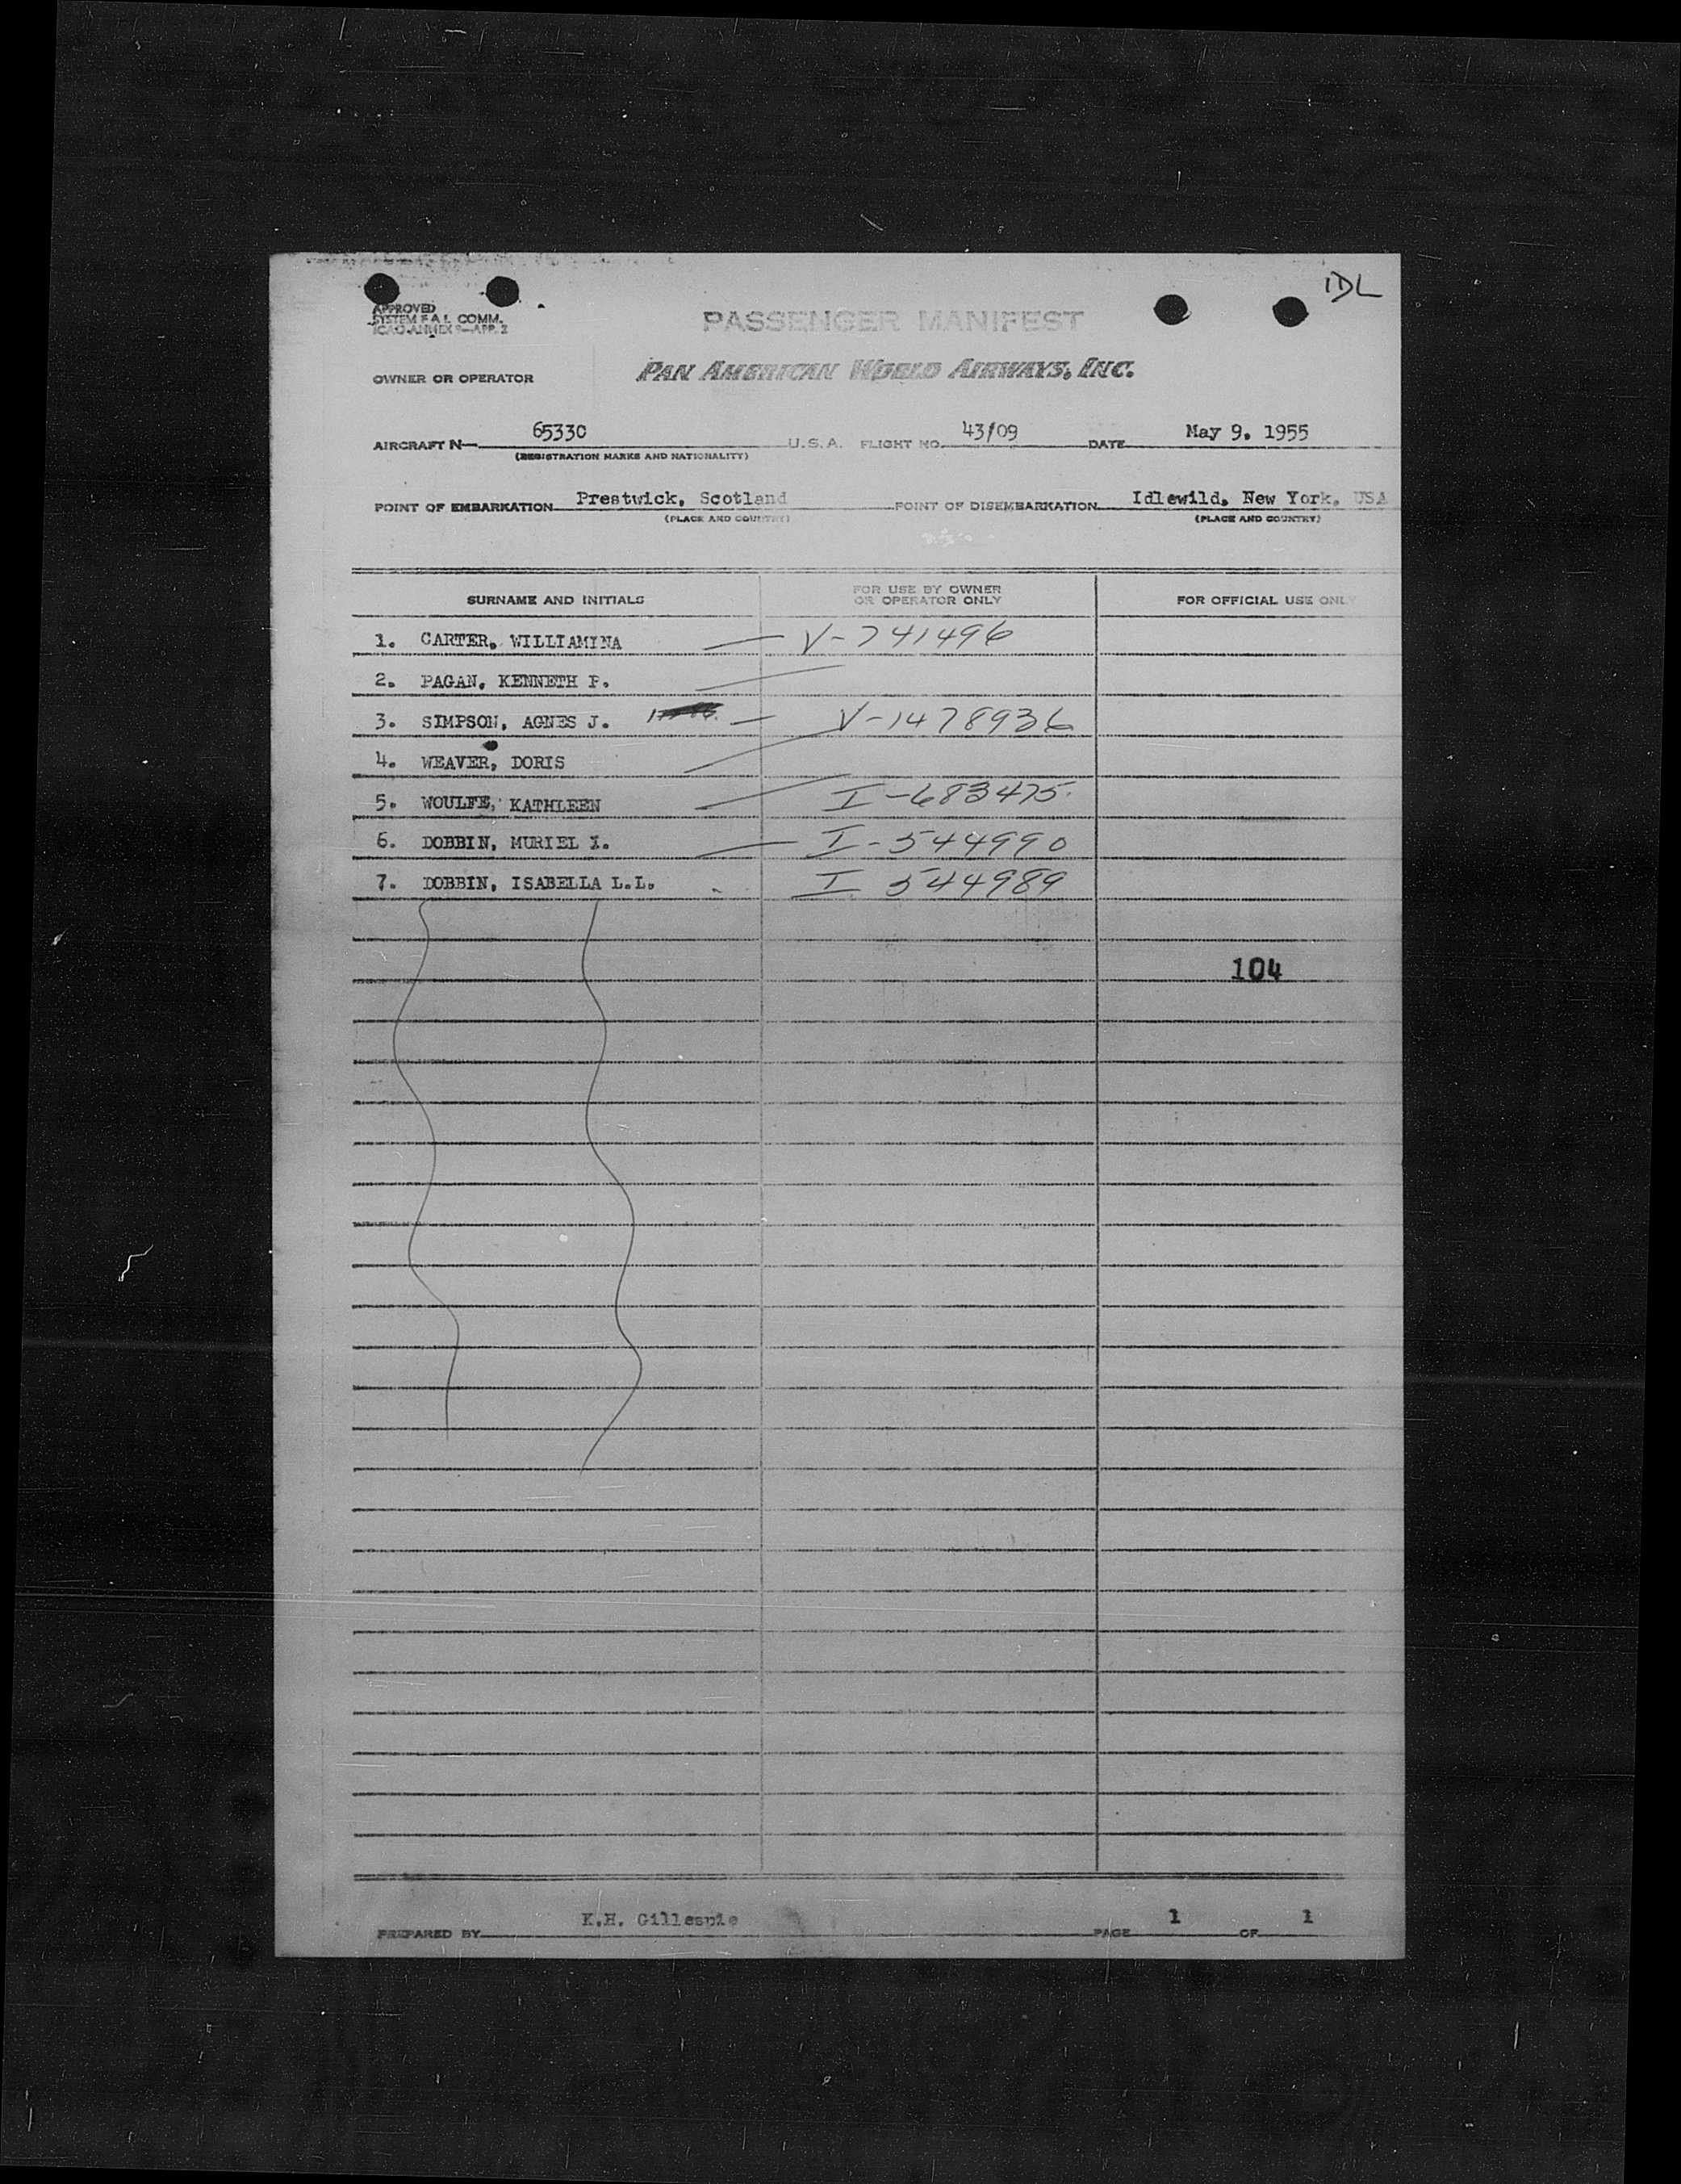 IDL
APPROVED
SYSTEM F A L COMM.
ICAO-ANNEX 9-APP. 2
PASSENGER MANIFEST
OWNER OR OPERATOR PAN AMERICAN WORLD AIRWAYS, INC.
AIRCRAFT N- 65330 U.S.A. FLIGHT NO. 43/09 DATE May 9. 1955
(REGISTRATION MARKS AND NATIONALITY)
POINT OF EMBARKATION Prestwick, Scotland POINT OF DISEMBARKATION Idlewild, New York, USA
(PLACE AND COUNTRY) (PLACE AND COUNTRY)
SURNAME AND INITIALS FOR USE BY OWNER OR OPERATOR ONLY FOR OFFICIAL USE ONLY
1. CARTER, WILLIAMINA V-741496
2. PAGAN, KENNETH P.
3. SIMPSON, AGNES J. V-1478936
4. WEAVER, DORIS
5. WOULFE, KATHLEEN I-683475
6. DOBBIN, MURIEL I. I-544990
7. DOBBIN, ISABELLA L.L. I 544989
104
PREPARED BY K.H. Gillespie PAGE 1 OF 1